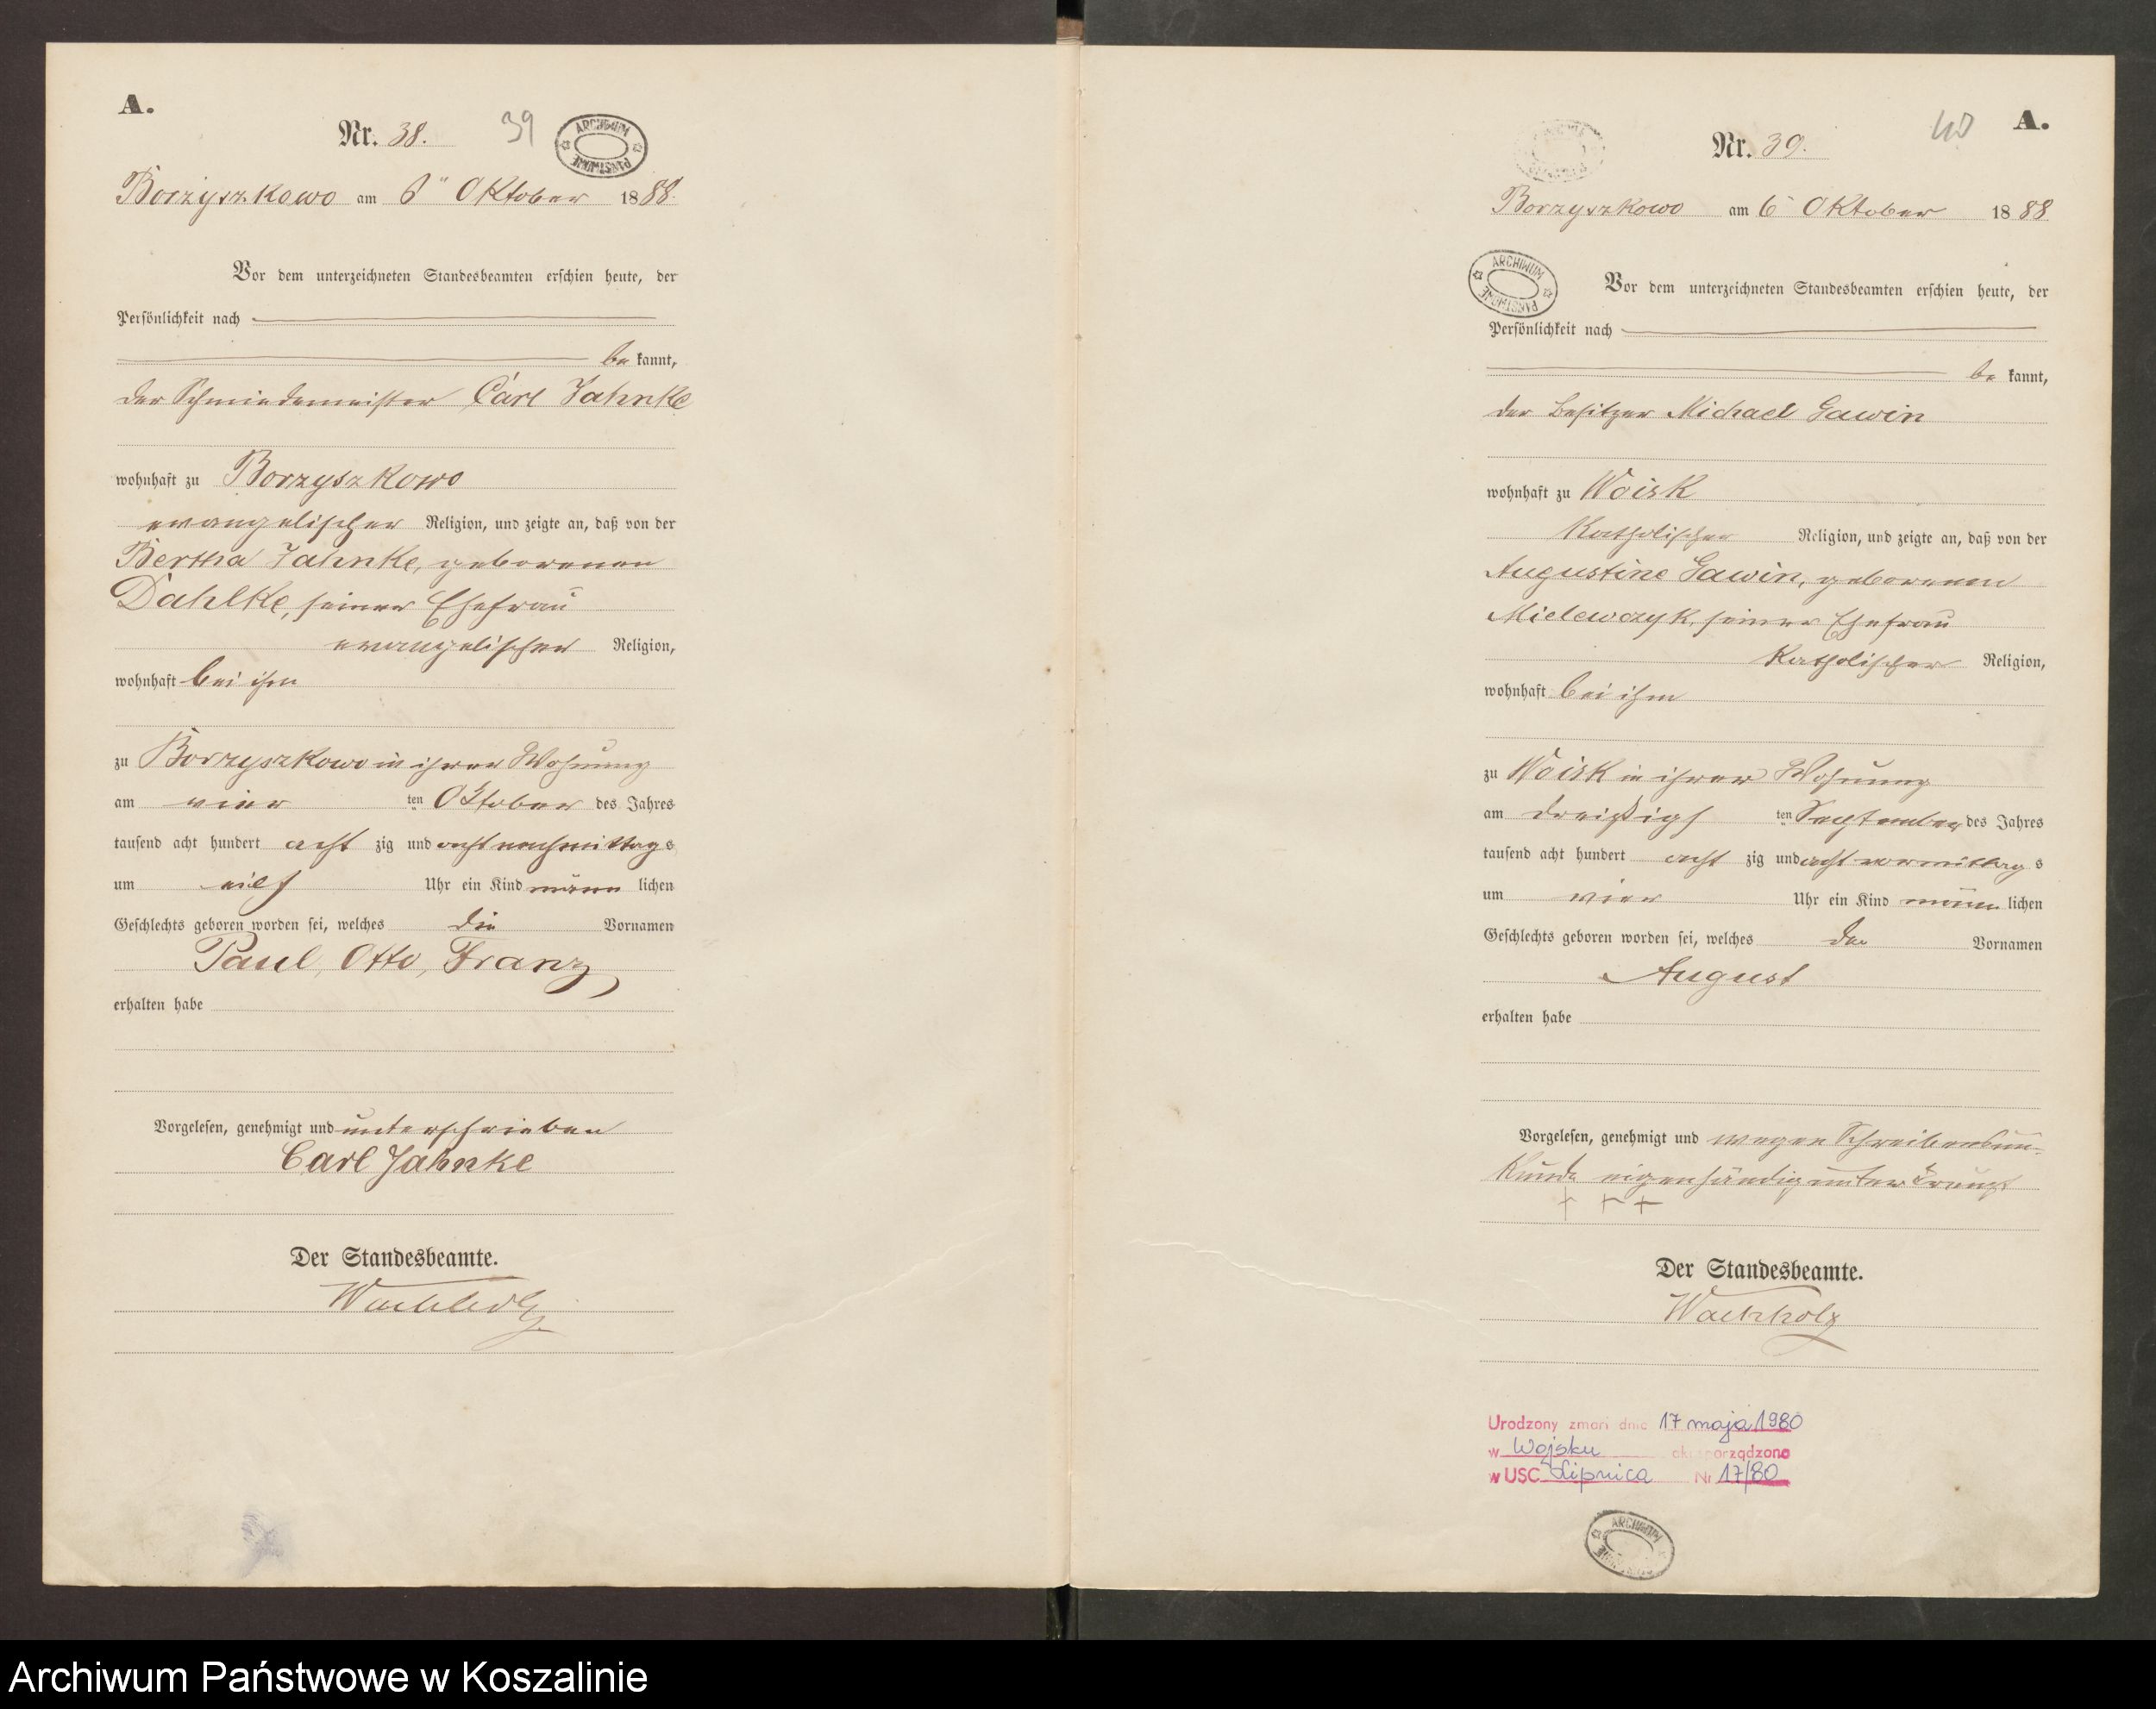 A.
Nr. 38.
39
ARCHIWUM PAŃSTWOWE
Borzyszkowo am 6ⁿ Oktober 1888.
Vor dem unterzeichneten Standesbeamten erschien heute, der
Persönlichkeit nach
be kannt,
der Schmiedemeister Carl Jahnke
wohnhaft zu Borzyszkowo
evangelischer Religion, und zeigte an, daß von der
Bertha Jahnke, geborenen
Dahlke, seiner Ehefrau
evangelischer Religion,
wohnhaft bei ihm
zu Borzyszkowo in ihrer Wohnung
am vier ten Oktober des Jahres
tausend acht hundert acht zig und acht nachmittags
um elf Uhr ein Kind männ lichen
Geschlechts geboren worden sei, welches die Vornamen
Paul, Otto, Franz
erhalten habe
Vorgelesen, genehmigt und unterschrieben
Carl Jahnke
Der Standesbeamte.
Wachholz
A.
40
Nr. 39.
Borzyszkowo am 6 Oktober 1888
ARCHIWUM PAŃSTWOWE
Vor dem unterzeichneten Standesbeamten erschien heute, der
Persönlichkeit nach
be kannt,
der Besitzer Michael Gawin
wohnhaft zu Woisk
Katholischer Religion, und zeigte an, daß von der
Augustine Gawin, geborenen
Mielewczyk, seiner Ehefrau
Katholischer Religion,
wohnhaft bei ihm
zu Woisk in ihrer Wohnung
am dreißigs ten September des Jahres
tausend acht hundert acht zig und acht vormittags
um vier Uhr ein Kind männ lichen
Geschlechts geboren worden sei, welches den Vornamen
August
erhalten habe
Vorgelesen, genehmigt und wegen Schreibensun-
kunde eigenhändig unterkreuzt
+ + +
Der Standesbeamte.
Wachholz
Urodzony zmarł dnia 17 maja 1980
w Wojsku akt sporządzono
w USC Lipnica Nr 17/80
ARCHIWUM PAŃSTWOWE
Archiwum Państwowe w Koszalinie